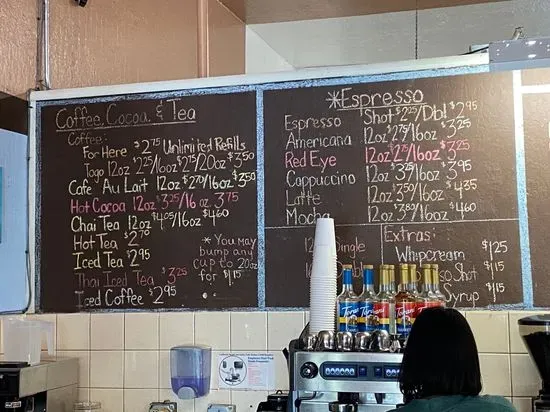 Coffee, Cocoa & Tea
Coffee:
For Here $2.75 Unlimited Refills
Togo 12oz $2.25/16oz $2.75/20oz $3.50
Cafe' Au Lait 12oz $2.70/16oz $3.50
Hot Cocoa 12oz $3.25/16 oz. $3.75
Chai Tea 12oz $4.05/16oz $4.60
Hot Tea $2.70
Iced Tea $2.95
Thai Iced Tea $3.25
Iced Coffee $2.95
* You may
bump any
cup to 20oz
for $1.15
*Espresso
Espresso Shot $2.25/Dbl $2.95
Americana 12oz $2.75/16oz $3.25
Red Eye 12oz $2.75/16oz $3.25
Cappuccino 12oz $3.25/16oz $3.95
Latte 12oz $3.50/16oz $4.35
Mocha 12oz $3.80/16oz $4.60
12oz Single
16oz Double
Extras:
Whipcream $1.25
Shot $1.15
Syrup $1.15
Torani
Torani